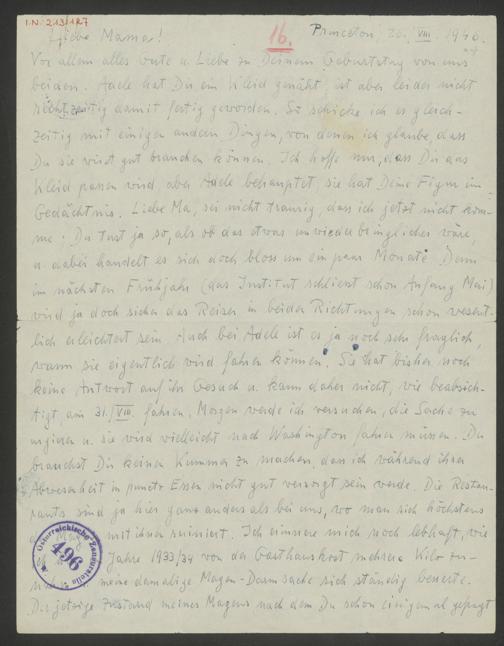 I.N. 213.127
16.
Princeton 20./VIII. 1946.
Liebe Mama!
Vor allem alles Gute u. Liebe zu Deinem Geburtstag von uns
beiden. Adele hat Dir ein Kleid genäht, ist aber leider nicht
rechtzeitig damit fertig geworden. So schicke ich es gleich-
zeitig mit einigen andern Dingen, von denen ich glaube, dass
Du sie wirst gut brauchen können. Ich hoffe nur, dass Dir das
Kleid passen wird aber Adele behauptet, sie hat Deine Figur im
Gedächtnis. Liebe Ma, sei nicht traurig, dass ich jetzt nicht kom-
me! Du tust ja so, als ob das etwas unwiederbringliches wäre,
u. dabei handelt es sich doch bloss um ein paar Monate. Denn
im nächsten Frühjahr (das Institut schliesst schon Anfang Mai)
wird ja doch sicher das Reisen in beiden Richtungen schon wesent-
lich erleichtert sein. Auch bei Adele ist es ja noch sehr fraglich,
wann sie eigentlich wird fahren können. Sie hat bisher noch
keine Antwort auf ihr Gesuch u. kann daher nicht, wie beabsich-
tigt, am 31./VIII. fahren. Morgen werde ich versuchen, die Sache zu
urgieren u. sie wird vielleicht nach Washington fahren müssen. Du
brauchst Dir keinen Kummer zu machen, dass ich während ihrer
Abwesenheit in puncto Essen nicht gut versorgt sein werde. Die Restau-
rants sind ja hier ganz anders als bei uns, wo man sich höchstens
mit ihnen ruiniert. Ich erinnere mich noch lebhaft, wie
Jahre 1933/34 von der Gasthauskost mehrere Kilo
meine damalige Magen-Darmsache sich ständig besserte.
Der jetzige Zustand meines Magens nach dem Du schon einigemal gefragt
Österreichische Zensurstelle
496